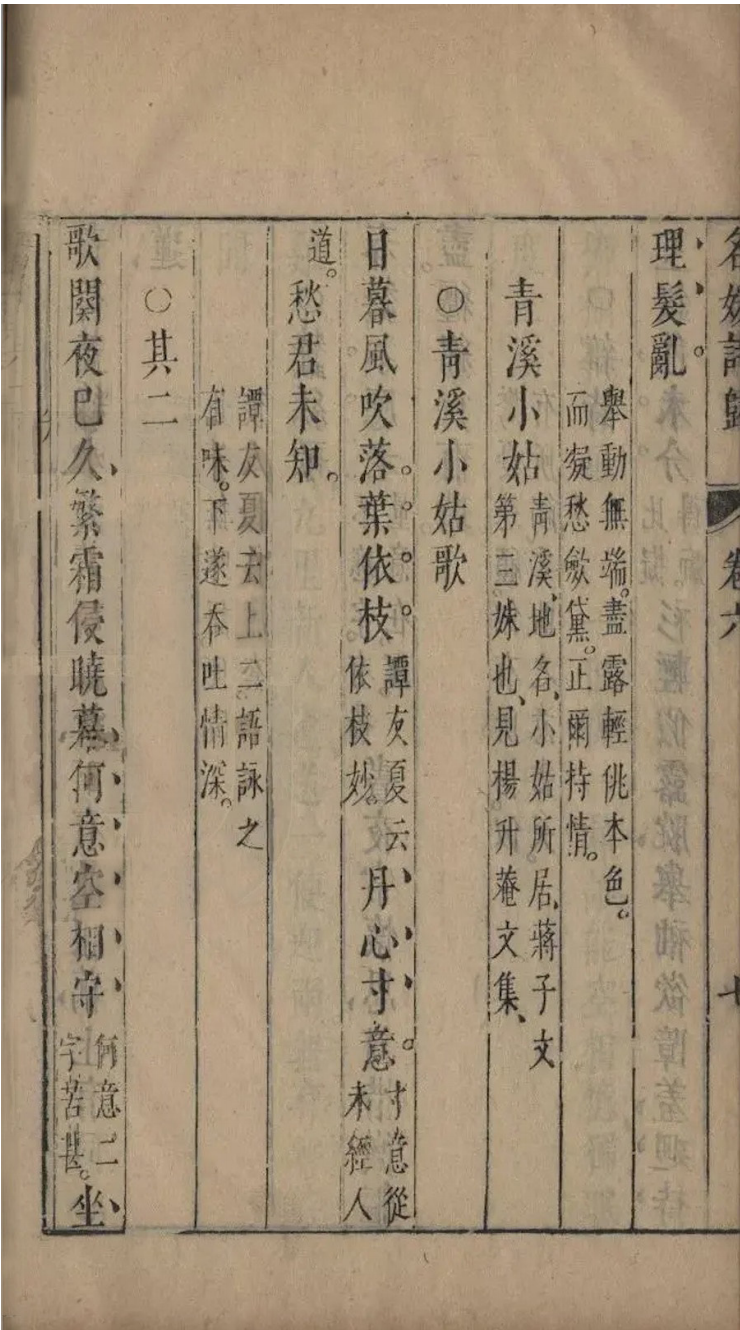 名媛詩歸 卷六 七
理髮亂。
舉動無端。盡露輕佻本色。
而凝愁斂黛。正爾持情。
青溪小姑
青溪、地名、小姑所居、蔣子文
第三妹也、見楊升菴文集、
○青溪小姑歌
日暮風吹落。葉。依。枝。
譚友夏云
依枝妙。
丹心寸意。
寸意從
未經人
道。
愁君未知。
譚友夏云上二語詠之
有味。下遂吞吐情深。
○其二
歌闋夜已久、繁霜侵曉幕、何、意、空、相、守、
何意二
字苦甚。
坐、